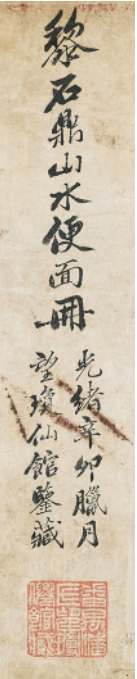 黎石鼎山水便面冊
光緒辛卯臘月
望瓊仙館鑒藏